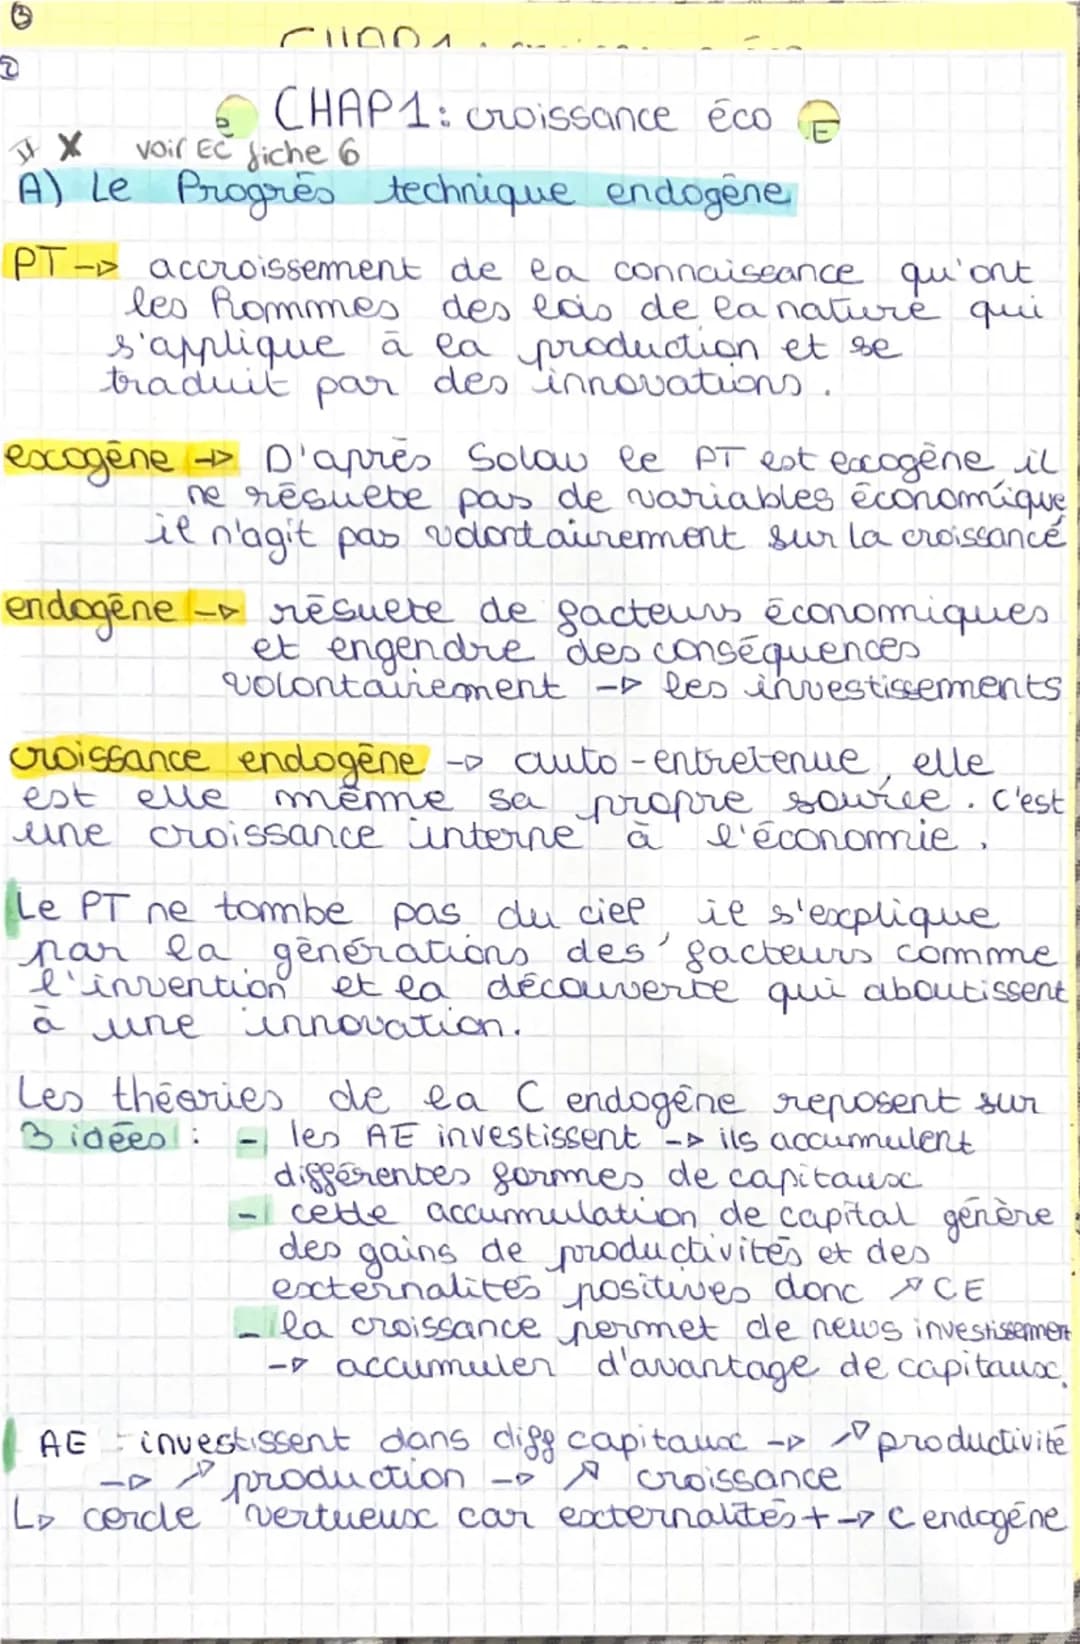 CHAP1: croissance éco
E
II X voir EC fiche 6
A) Le Progrès technique endogène
PT -> accroissement de la connaissance qu'ont
les hommes des lois de la nature qui
s'applique à la production et se
traduit par des innovations.
exogène -> D'après Solow le PT est exogène il
ne résulte pas de variables économique
il n'agit pas volontairement sur la croissance
endogène -> résulte de facteurs économiques
et engendre des conséquences
volontairement -> les investissements
croissance endogène -> auto-entretenue, elle
est elle même sa propre source. C'est
une croissance interne à l'économie.
Le PT ne tombe pas du ciel il s'explique
par la générations des facteurs comme
l'invention et la découverte qui aboutissent
à une innovation.
Les théories de la C endogène reposent sur
3 idées : - les AE investissent -> ils accumulent
différentes formes de capitaux
- cette accumulation de capital génère
des gains de productivités et des
externalités positives donc ↗ CE
- la croissance permet de news investissement
-> accumuler d'avantage de capitaux.
AE investissent dans diff capitaux -> ↗ productivité
-> ↗ production -> ↗ croissance
L> cercle vertueux car externalités + -> C endogène